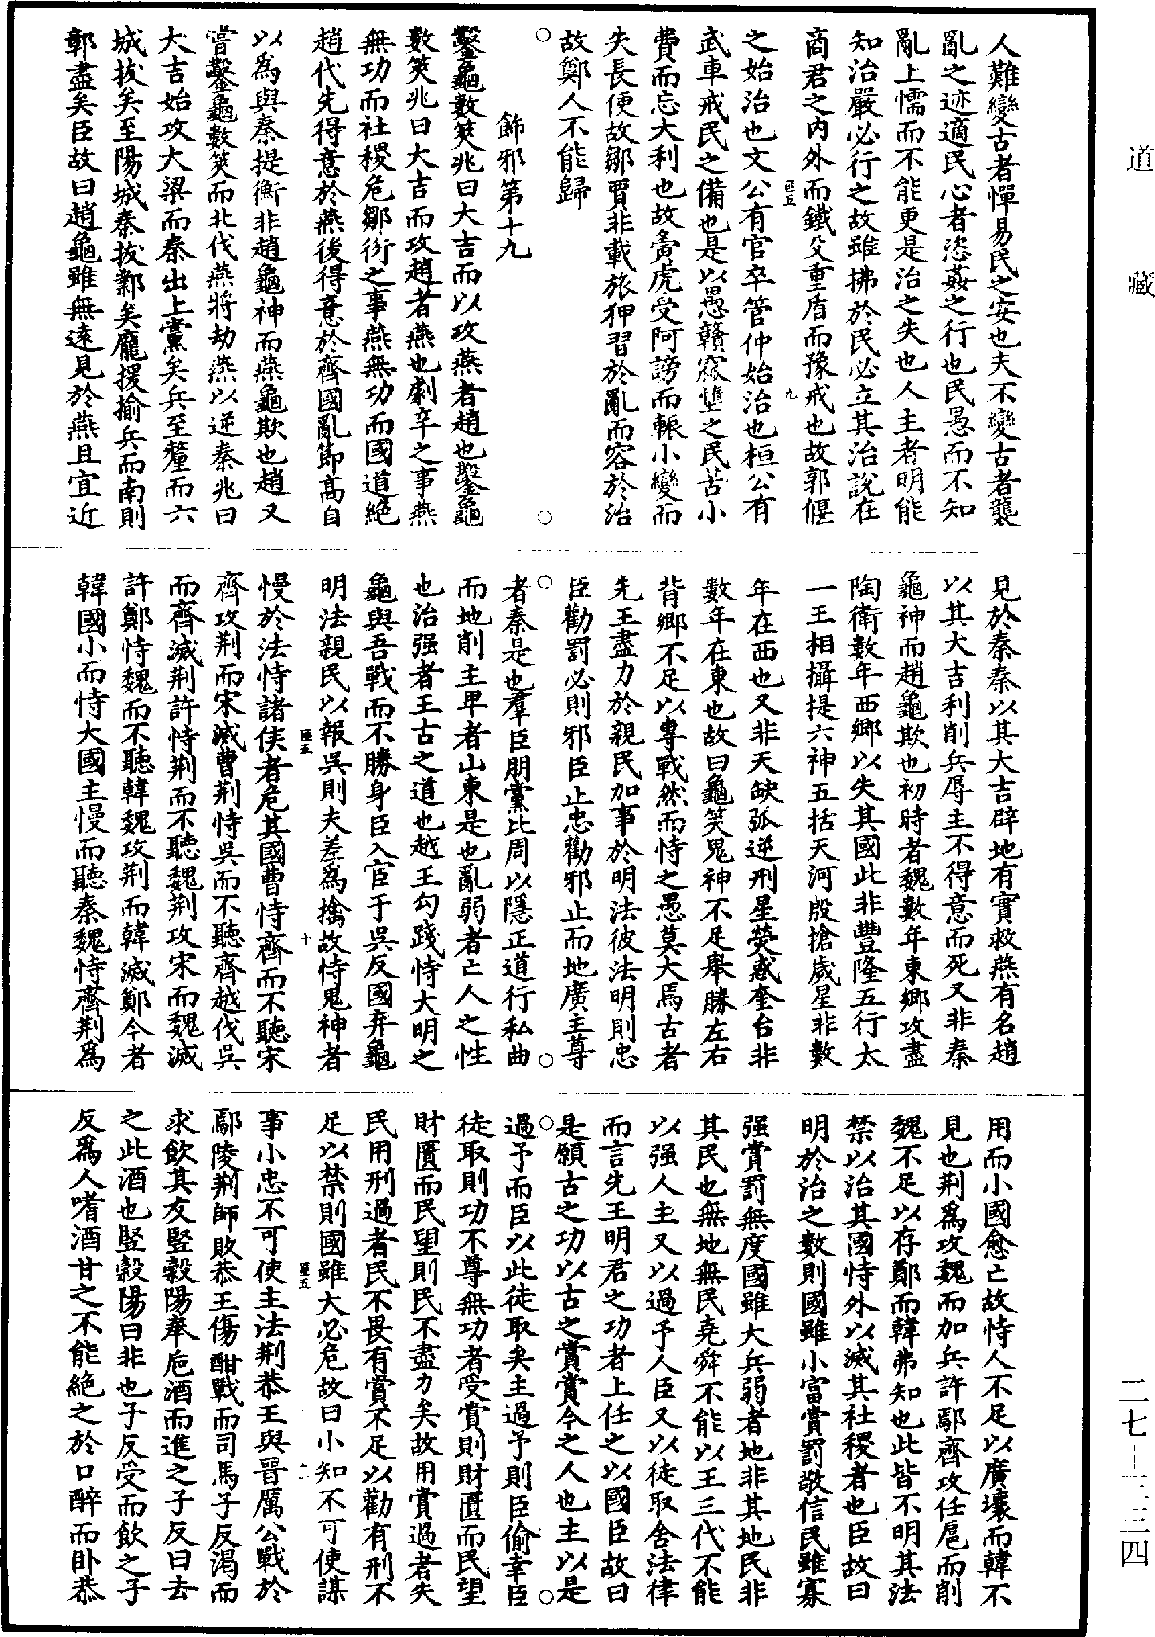 道藏
人難變古者憚易民之安也夫不變古者襲
亂之迹適民心者恣姦之行也民愚而不知
亂上懦而不能更是治之失也人主者明能
知治嚴必行之故雖拂於民必立其治說在
商君之内外而鐵殳重盾而豫戒也故郭偃
之始治也文公有官卒管仲始治也桓公有
武車戒民之備也是以愚贛窳墯之民苦小
費而忘大利也故夤虎受阿謗而輾小變而
失長便故鄒賈非載旅狎習於亂而容於治
故鄭人不能歸
飾邪第十九
鑿龜數筴兆曰大吉而以攻燕者趙也鑿龜
數筴兆曰大吉而攻趙者燕也劇辛之事燕
無功而社稷危鄒衍之事燕無功而國道絶
趙代先得意於燕後得意於齊國亂節高自
以為與秦提衡非趙龜神而燕龜欺也趙又
嘗鑿龜數筴而北伐燕將劫燕以逆秦兆曰
大吉始攻大梁而秦出上黨矣兵至釐而六
城拔矣至陽城秦拔鄴矣龐援揄兵而南則
鄣盡矣臣故曰趙龜雖無遠見於燕且宜近
見於秦秦以其大吉辟地有實救燕有名趙
以其大吉利削兵辱主不得意而死又非秦
龜神而趙龜欺也初時者魏數年東鄉攻盡
陶衛數年西鄉以失其國此非豐隆五行太
一王相攝提六神五括天河殷搶歲星非數
年在西也又非天缺弧逆刑星熒惑奎台非
數年在東也故曰龜筴鬼神不足舉勝左右
背鄉不足以專戰然而恃之愚莫大焉古者
先王盡力於親民加事於明法彼法明則忠
臣勸罰必則邪臣止忠勸邪止而地廣主尊
者秦是也羣臣朋黨比周以隱正道行私曲
而地削主卑者山東是也亂弱者亡人之性
也治强者王古之道也越王勾踐恃大明之
龜與吾戰而不勝身臣入宦于吳反國弃龜
明法親民以報吳則夫差為擒故恃鬼神者
慢於法恃諸侯者危其國曹恃齊而不聽宋
齊攻荆而宋滅曹荆恃吳而不聽齊越伐吳
而齊滅荆許恃荆而不聽魏荆攻宋而魏滅
許鄭恃魏而不聽韓魏攻荆而韓滅鄭今者
韓國小而恃大國主慢而聽秦魏恃齊荆爲
用而小國愈亡故恃人不足以廣壤而韓不
見也荆爲攻魏而加兵許鄢齊攻任扈而削
魏不足以存鄭而韓弗知也此皆不明其法
禁以治其國恃外以滅其社稷者也臣故曰
明於治之數則國雖小富賞罰敬信民雖寡
强賞罰無度國雖大兵弱者地非其地民非
其民也無地無民堯舜不能以王三代不能
以强人主又以過予人臣又以徒取舍法律
而言先王明君之功者上任之以國臣故曰
是願古之功以古之賞賞今之人也主以是
過予而臣以此徒取矣主過予則臣偷幸臣
徒取則功不尊無功者受賞則財匱而民望
財匱而民望則民不盡力矣故用賞過者失
民用刑過者民不畏有賞不足以勸有刑不
足以禁則國雖大必危故曰小知不可使謀
事小忠不可使主法荆恭王與晉厲公戰於
鄢陵荆師敗恭王傷酣戰而司馬子反渴而
求飲其友豎穀陽奉巵酒而進之子反曰去
之此酒也豎穀陽曰非也子反受而飲之子
反爲人嗜酒甘之不能絶之於口醉而卧恭